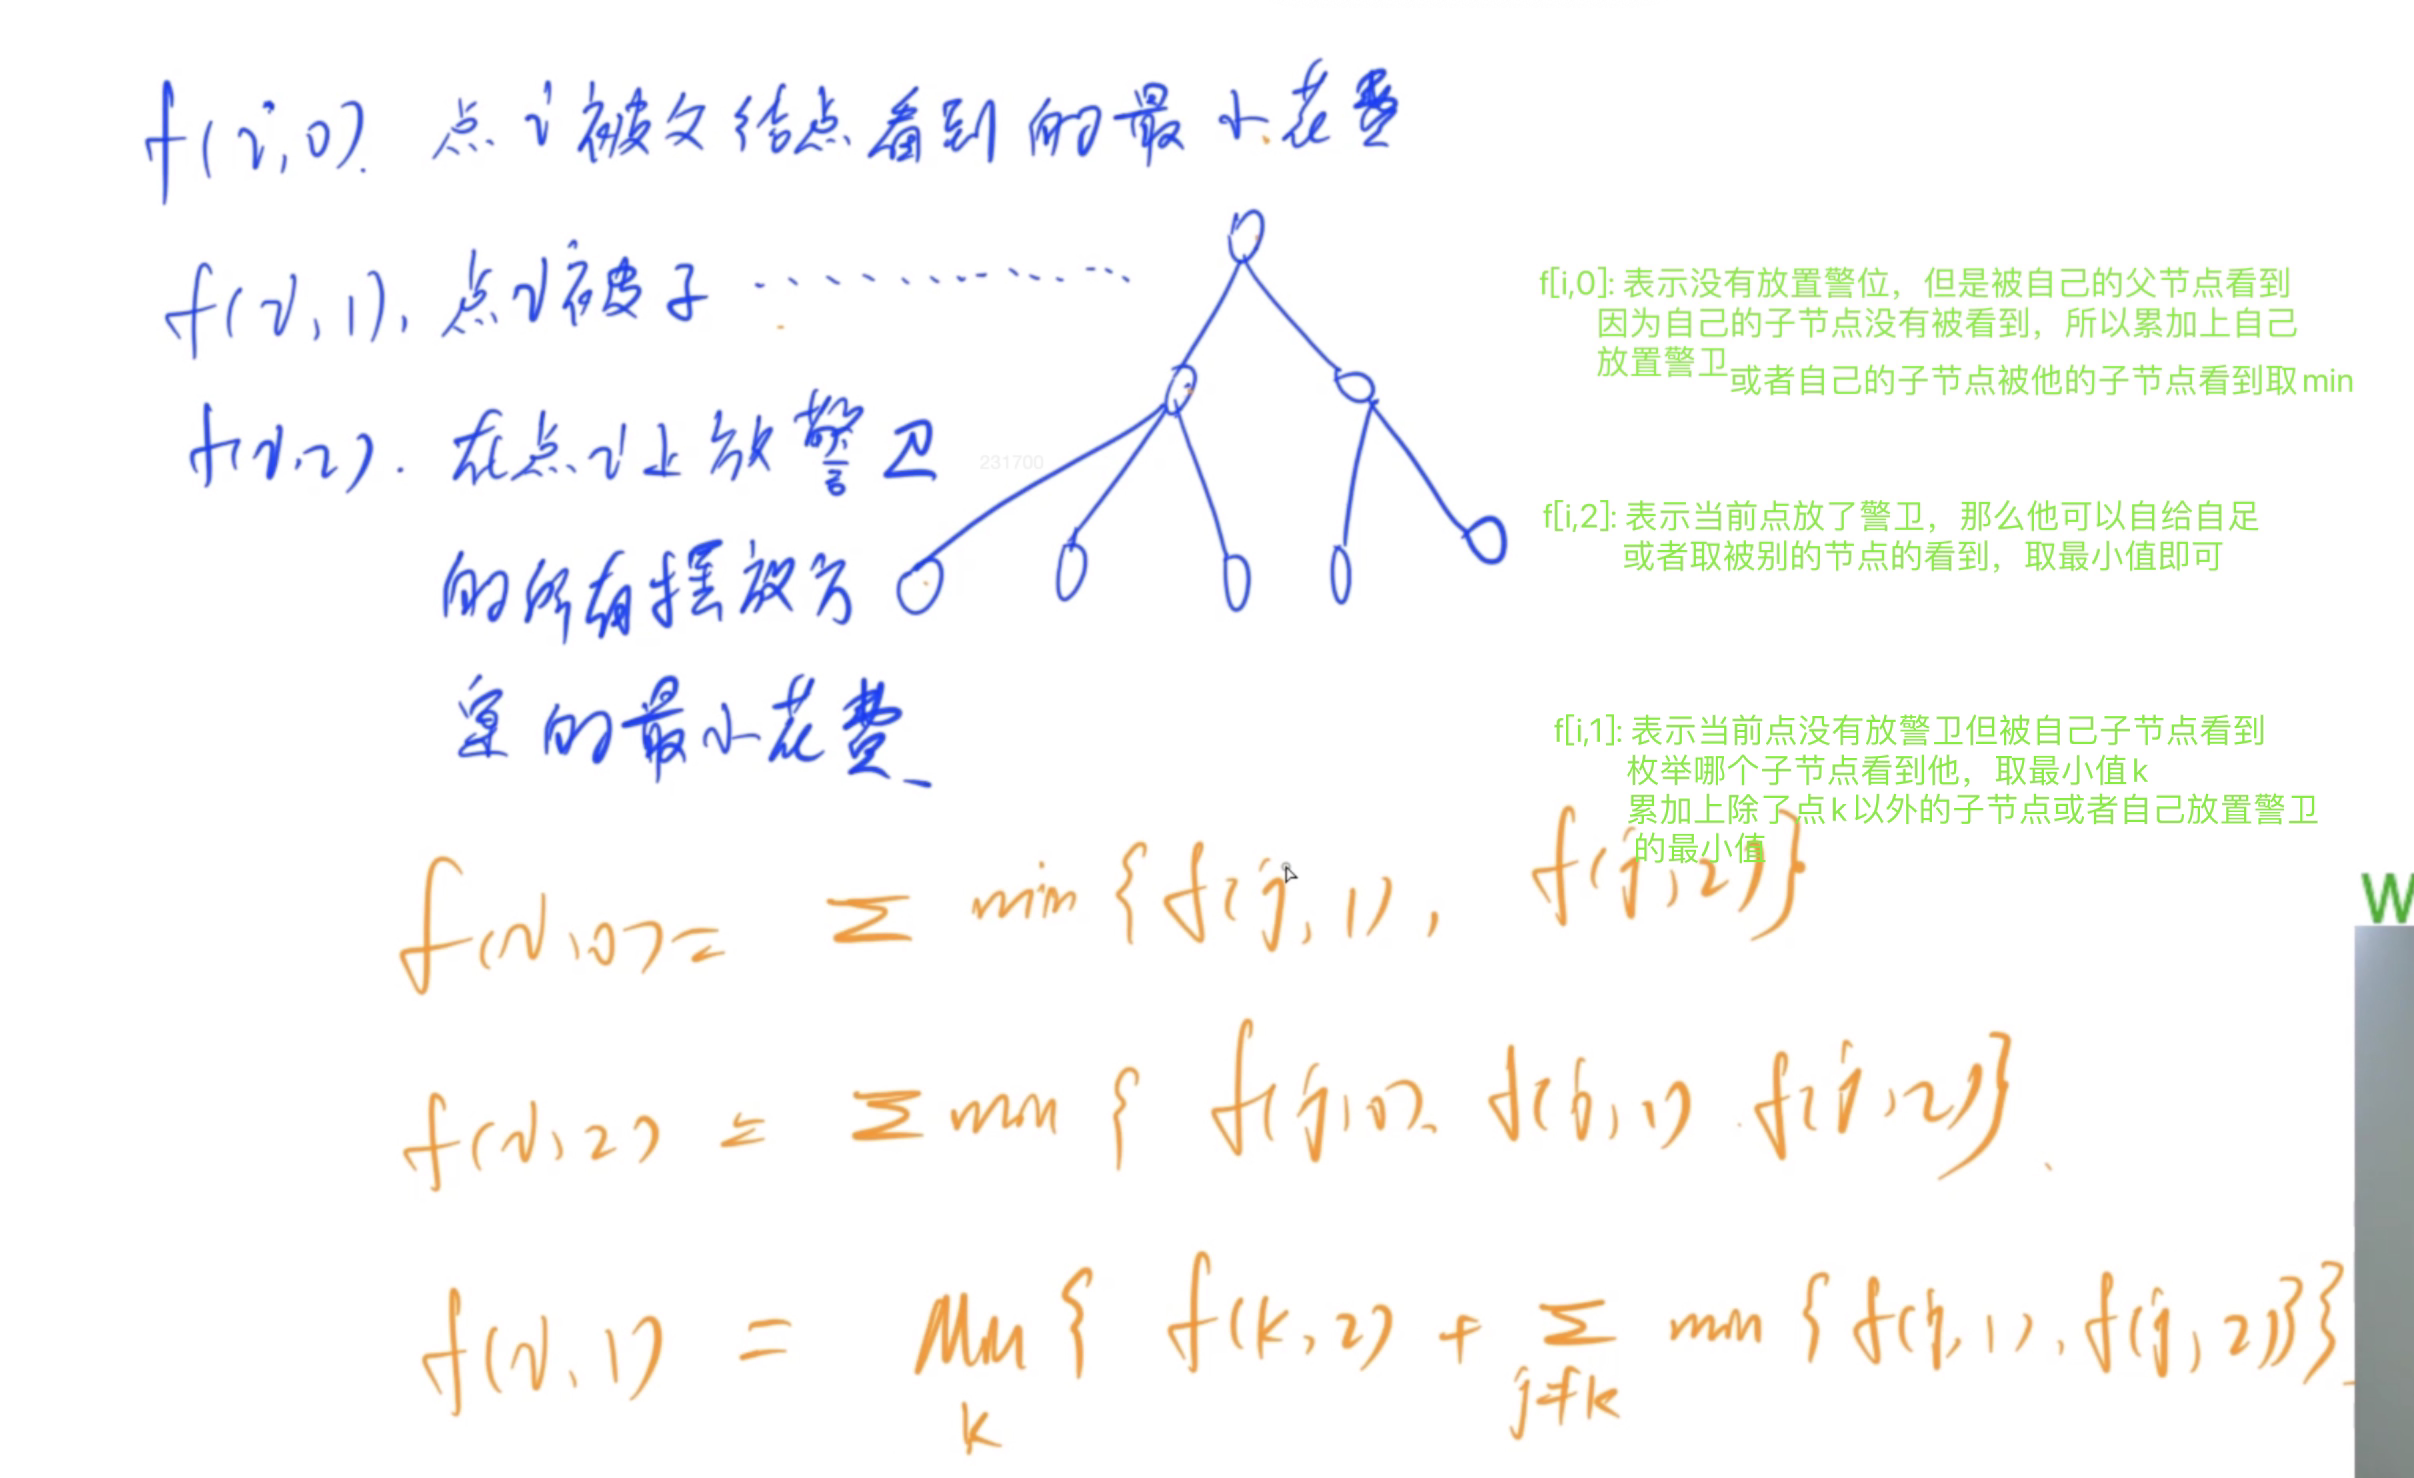 f(i,0). 点i被父结点看到的最小花费
f(i,1), 点i被子…………
f(i,2). 在点i上放警卫
的所有摆放方
案的最小花费
231700
f[i,0]: 表示没有放置警位，但是被自己的父节点看到
因为自己的子节点没有被看到，所以累加上自己
放置警卫
或者自己的子节点被他的子节点看到取min
f[i,2]: 表示当前点放了警卫，那么他可以自给自足
或者取被别的节点的看到，取最小值即可
f[i,1]: 表示当前点没有放警卫但被自己子节点看到
枚举哪个子节点看到他，取最小值k
累加上除了点k以外的子节点或者自己放置警卫
的最小值
f(i,0) = Σ min {f(j,1), f(j,2)}
f(i,2) = Σ min { f(j,0), f(j,1), f(j,2)}
f(i,1) = Min { f(k,2) + Σ min {f(j,1), f(j,2)}}
k j≠k
W